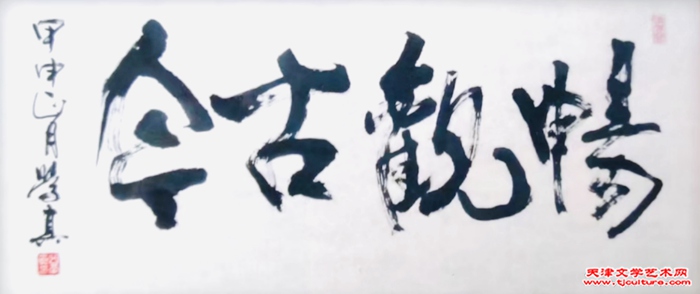 暢觀古今
甲申正月
天津文学艺术网
www.tjculture.com